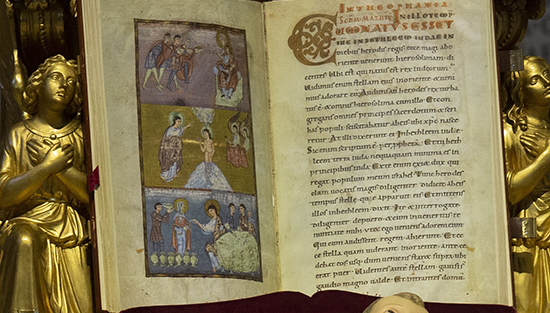 IN THEOPHANIA
IN ILLO TEMP
CUM NATUS ESSET
IHC IN BETHLEEM IUDAE IN
diebus herodis regis ecce magi ab
oriente uenerunt hierosolimam di
centes. Ubi est qui natus est rex iudeorum.
Uidimus enim stellam eius in oriente & ueni
mus adorare eum. Audiens herodes rex turba
tus ē & omnis hierosolima cum illo Et con
gregans omnes principes sacerdotum & scri
bas populi sciscitabatur ab eis ubi xpc nasce
retur At illi dixerunt. In bethleem iudae
Sic enim scriptum ē per prophetā. Et tu
bethleem terra iuda nequaquam minima es in
principibus iuda Ex te enim exiet dux qui
regat populum meum Tunc herodes
clam uocatis magis diligenter didicit ab eis
tempus stelle quae apparuit eis Et mittens
illos in bethleem dixit Ite & interrogate
diligenter de puero & cum inueneritis re
nuntiate mihi ut & ego ueniens adorem eum
Qui cum audissent regem abierunt Et ec
ce stella quam uiderant in oriente ante ce
debat eos usq dum ueniens staret supra ubi
erat puer Uidentes autē stellam gauisi s̄
gaudio magno ualde